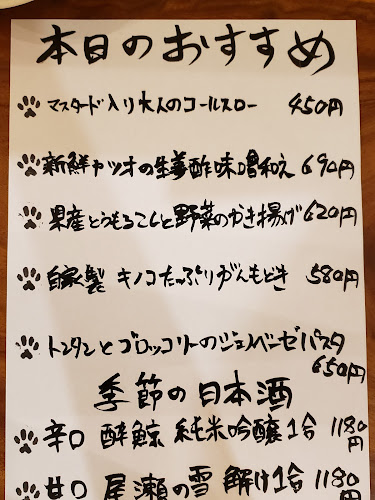 本日のおすすめ
マスタード入り大人のコールスロー 450円
新鮮カツオの生姜酢味噌和え 690円
県産とうもろこしと野菜のかき揚げ 620円
自家製 キノコたっぷりがんもどき 580円
トンタンとブロッコリーのジェノベーゼパスタ
650円
季節の日本酒
辛口 酔鯨 純米吟醸1合 1180円
甘口 尾瀬の雪 解け1合 1180